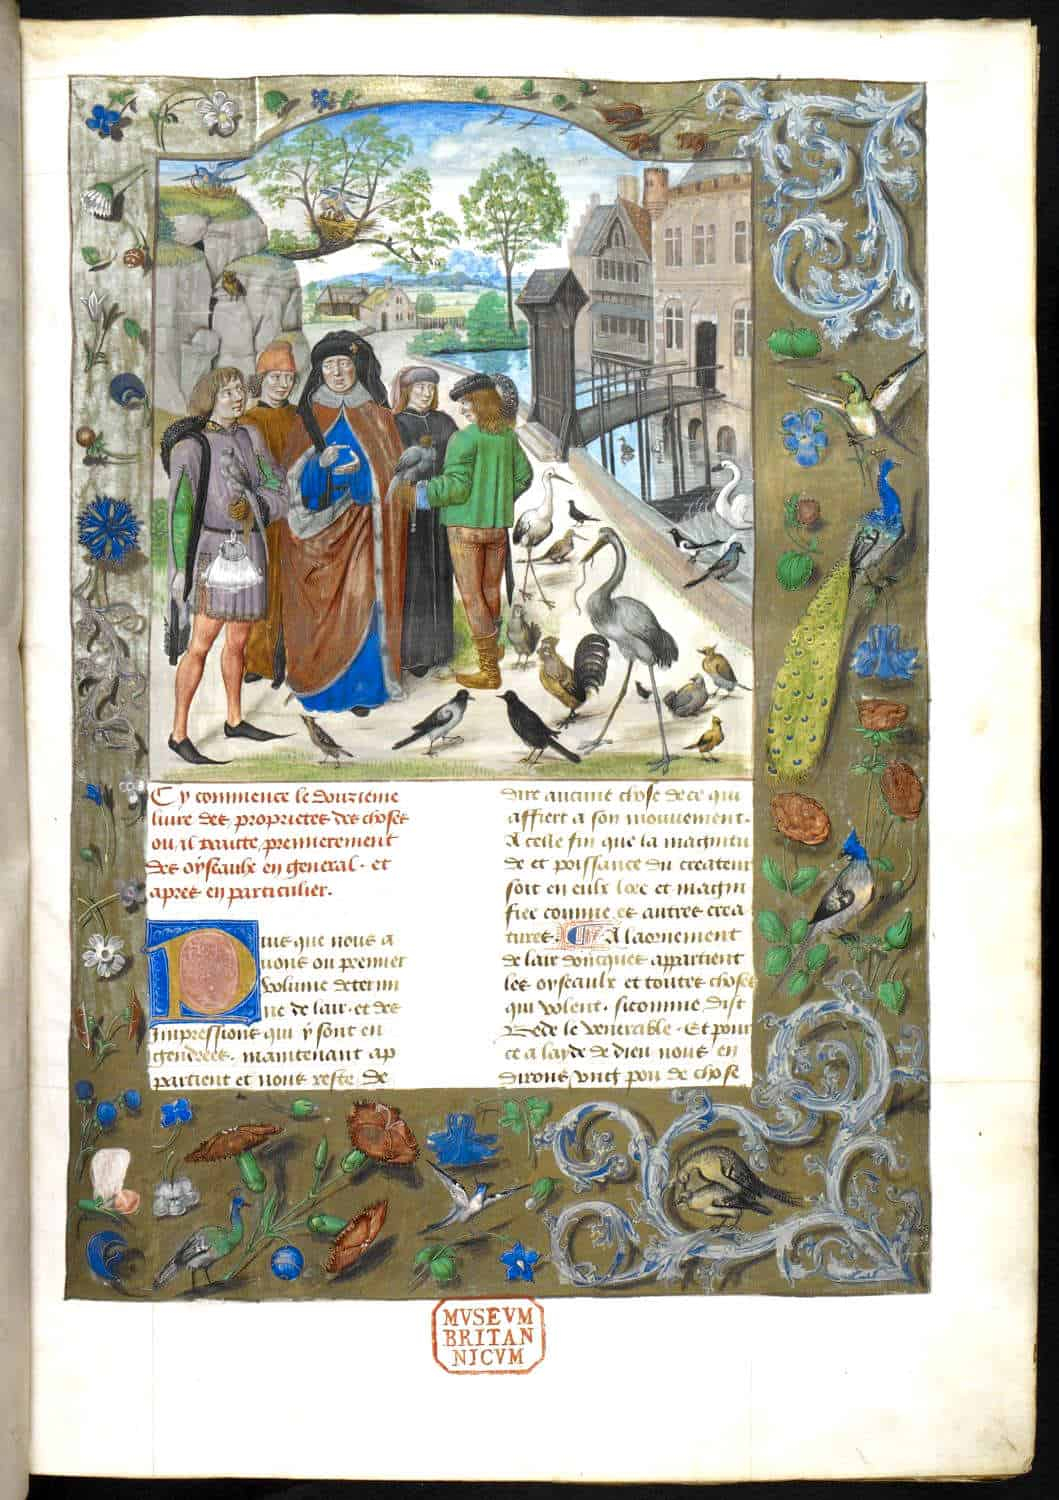 Cy commence le douzieme
livre des proprietes des choses
ou il traitte premierement
des oyseaulx en general · et
apres en particulier.
Puis que nous a
vons ou premier
volume determi
ne de lair · et des
impressions qui y sont en
gendrees · maintenant ap
partient et nous reste de
dire aucune chose de ce qui
affiert a son mouvement.
A celle fin que la magnitu
de et poissance du createur
soit en eulx loee et magni
fiee comme es autres crea
tures. A laornement
de lair doncques appartient
les oyseaulx et toutes choses
qui volent · sicomme dist
Bede le venerable · Et pour
ce a layde de dieu nous en
dirons ung pou de chose
MVSEVM
BRITAN
NICVM